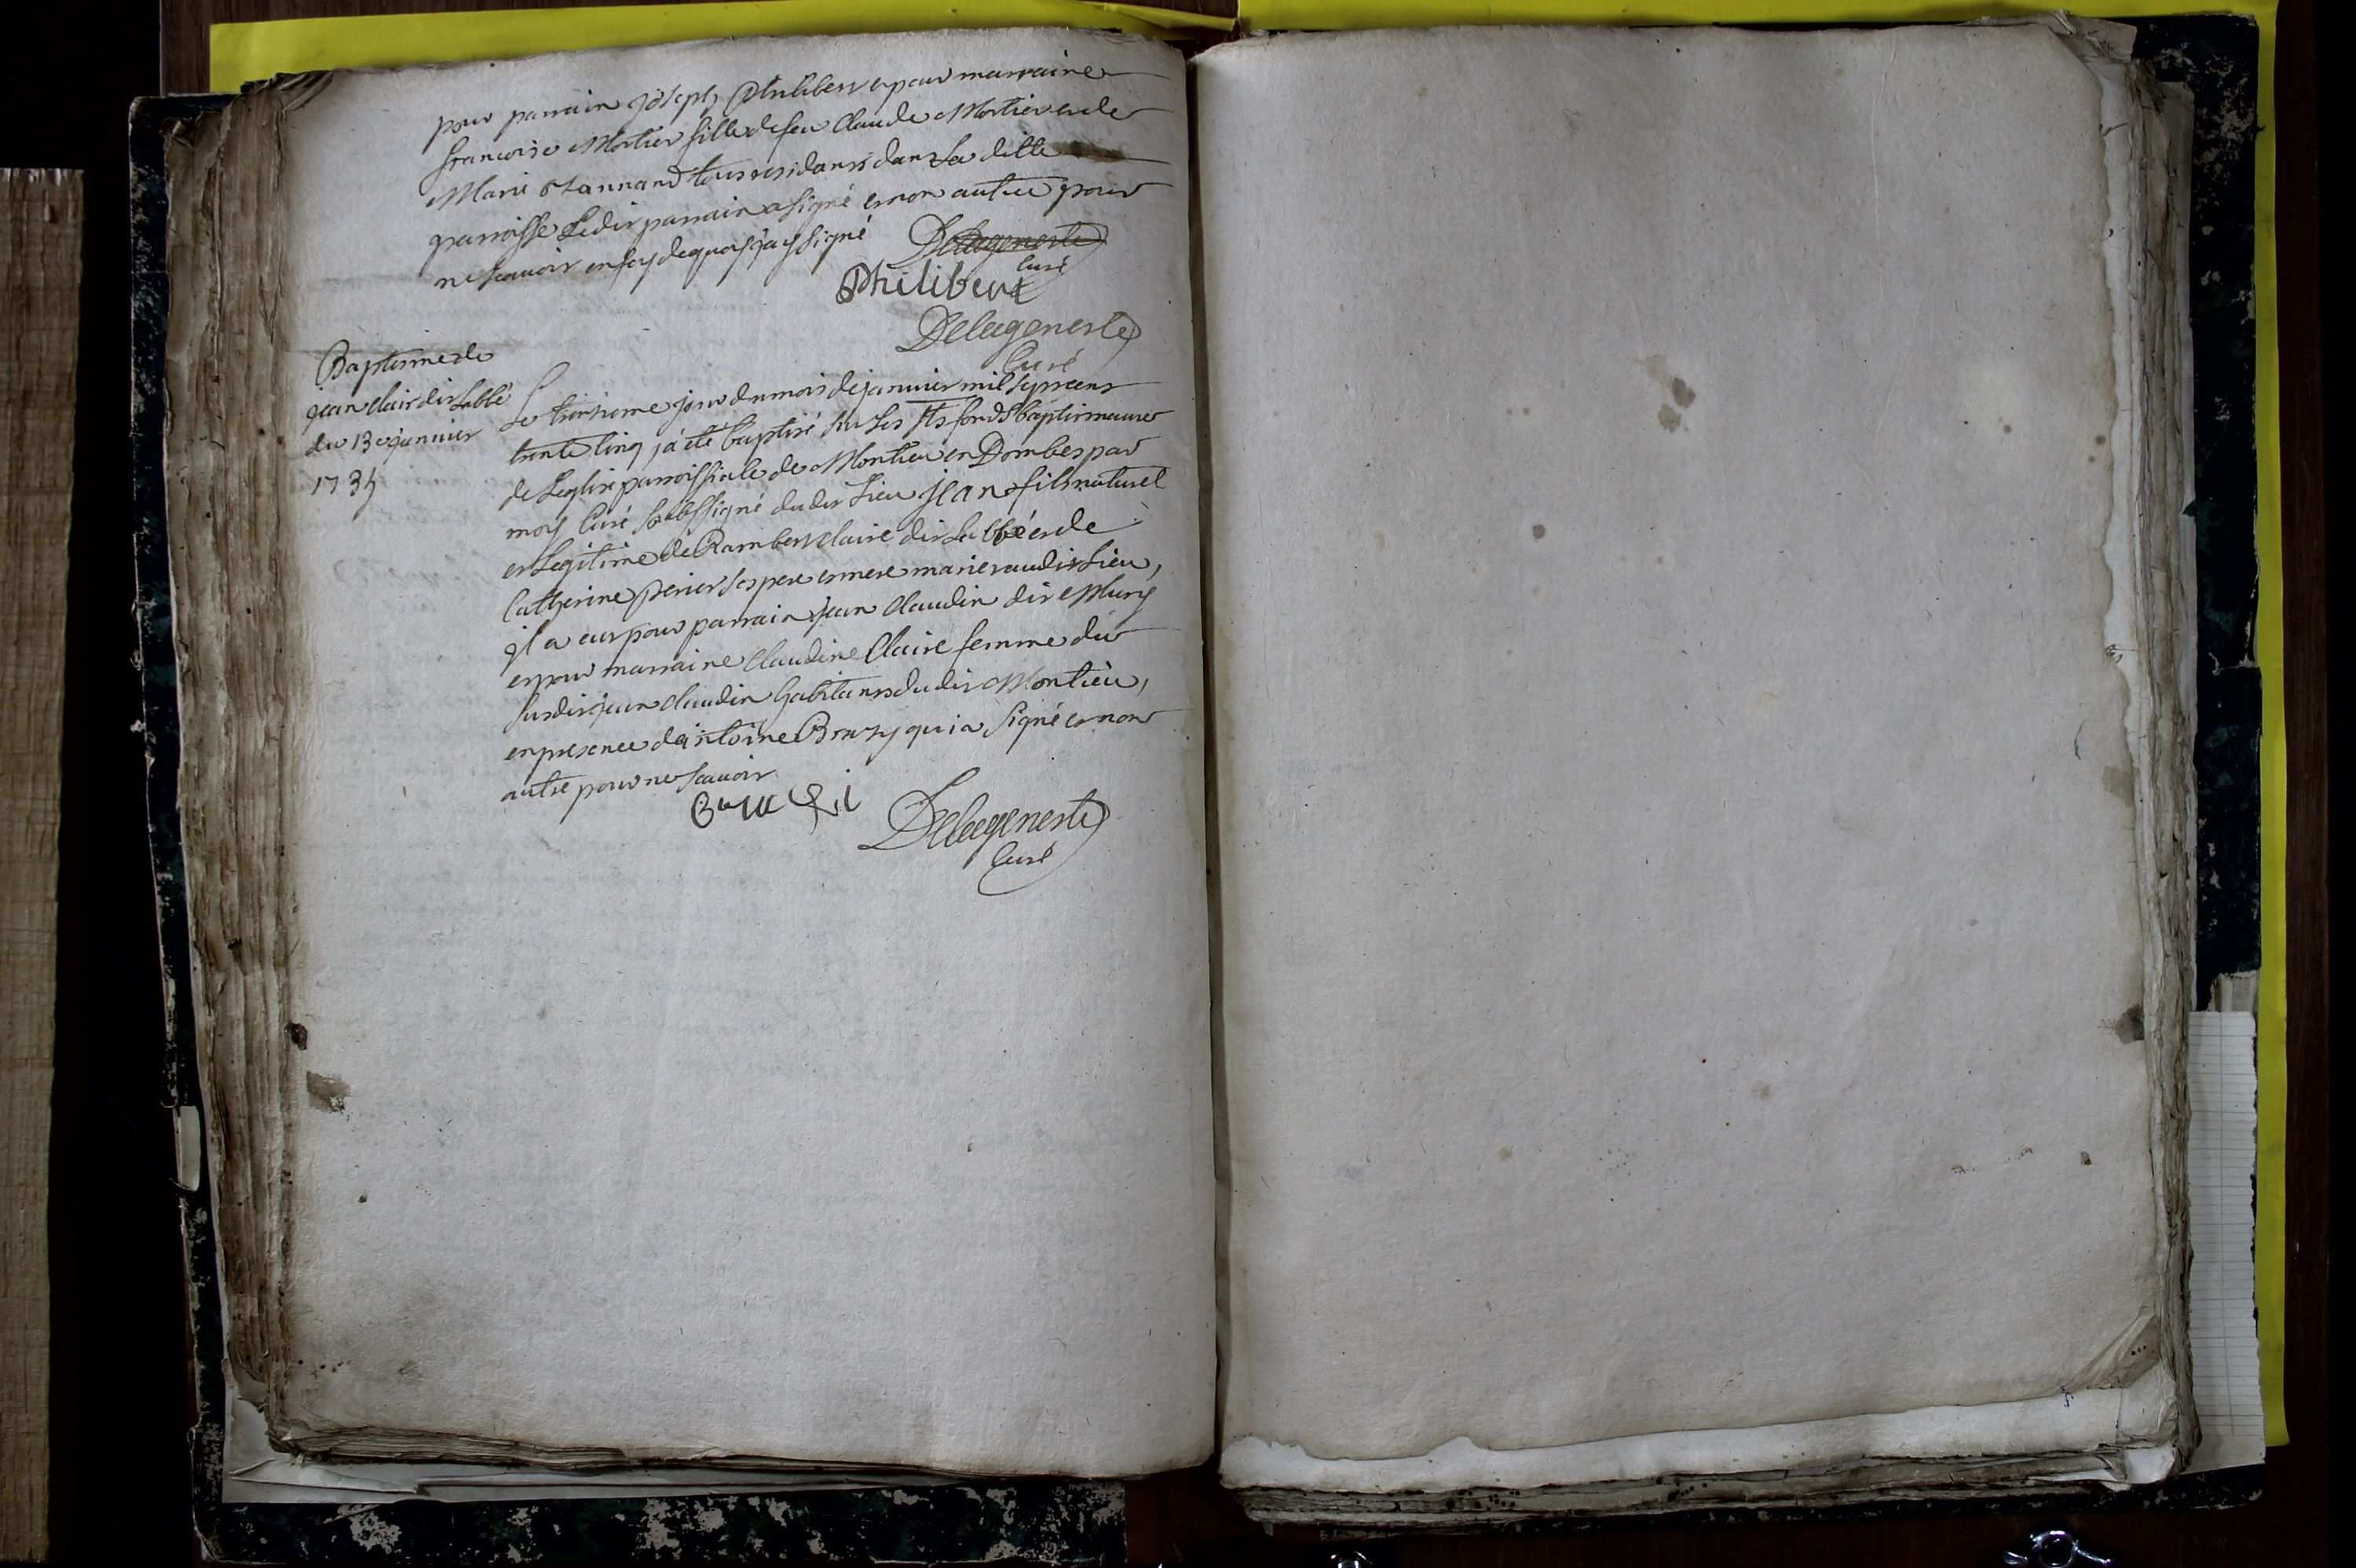 pour parrain joseph Philibert et pour marraine
francoise Mortier fille de feu Claude Mortier et de
Marie tous residants dans la ditte
parroisse Ledit parrain a signé et non autre pour
ne scauoir en foy de quoy j'ay signé Delageneste
Curé
Philibert
Delageneste
Curé
Baptesme de
jean clair dit Labbé
du 13e januier
1735
Le treisieme jour du mois de januier mil sept cens
trente cinq j'a été baptisé sur Les sts fonds baptismaux
de Leglise parroissiale de Montieu en Dombes par
moy Curé soubssigné dudit Lieu jean fils naturel
et Legitime de Rambert claire dit Labbé et de
Catherine perier ses pere et mere mariez audit Lieu,
jl a eut pour parrain jean Claudin dit Mury
et pour marraine Claudine Claire femme du
susdit jean claudin habitants dudit Montieu,
en presence dantoine qui a signé et non
autre pour ne scauoir
Delageneste
Curé